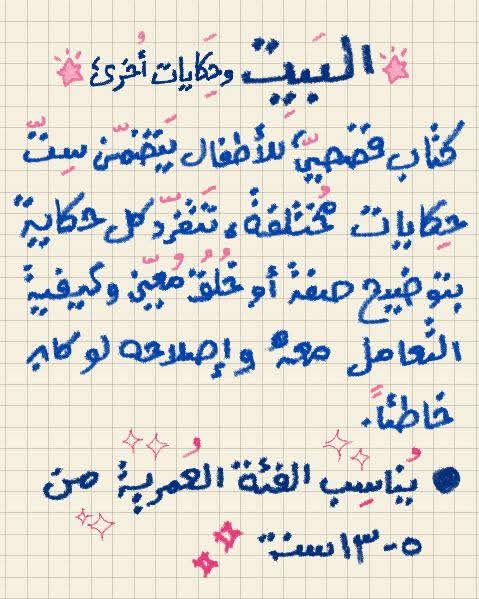 البيت وحكايات أُخرىٰ
كتاب قصصيّ للأطفال يَتضمّن سِتّ
حِكايات مُختلفة، تَتفرّد كل حكاية
بتوضيح صفة أو خُلُق مُعيّن وكيفية
التعامل معه وإصلاحه لو كان
خاطئاً.
● يُناسِب الفئة العُمرية من
٥-١٣ سنة